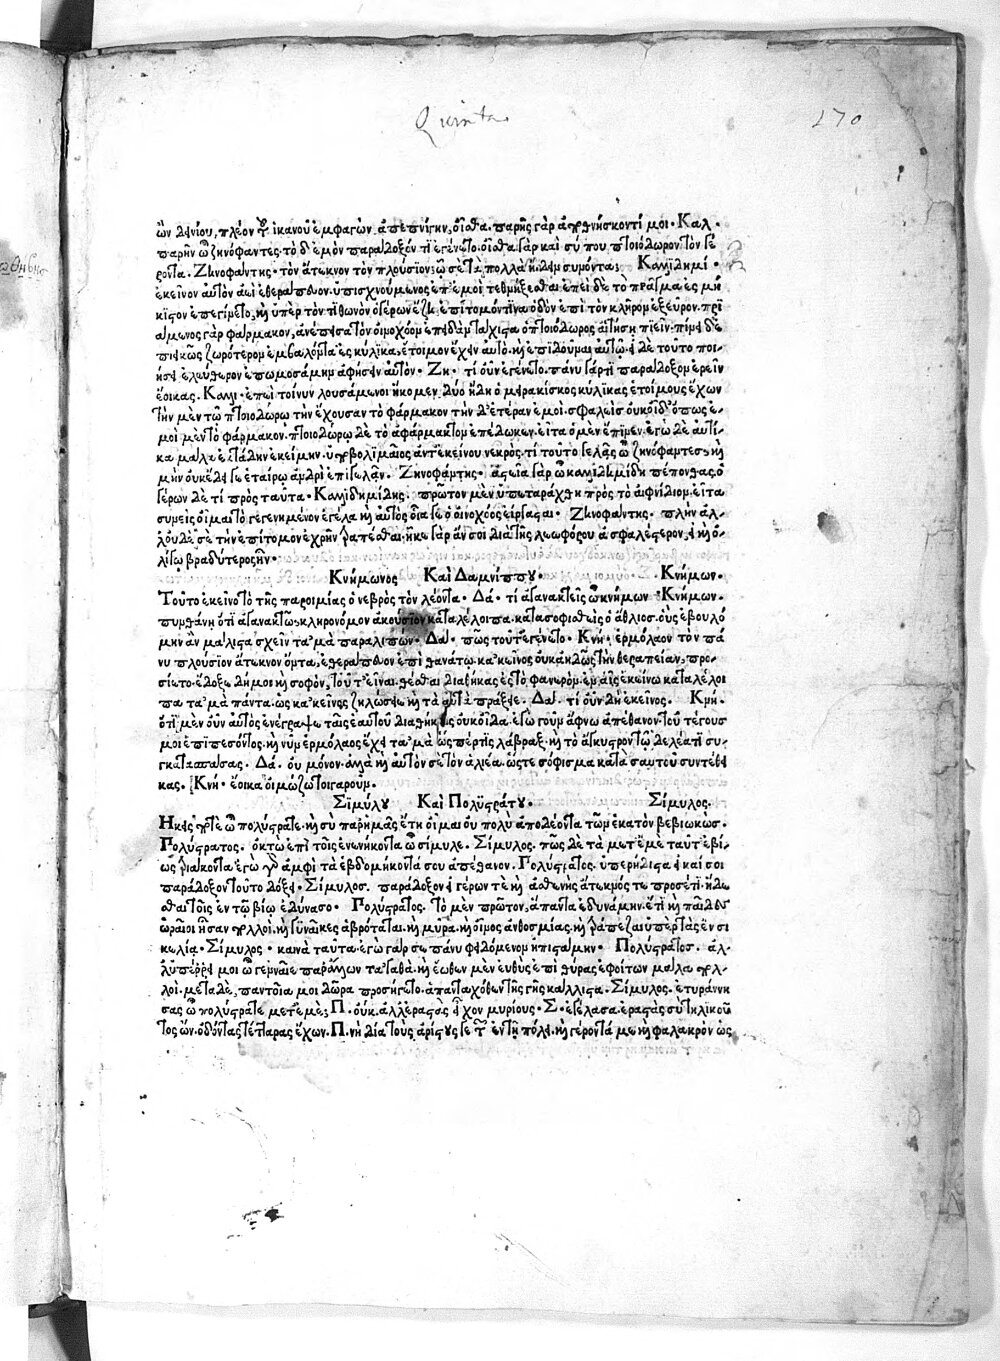 Quinta
170
ὢν δείπνου, πλέον τοῦ ἱκανοῦ ἐμφαγὼν ἀπεπνίγην, οἶσθα. παρῆς γὰρ ἀποθνήσκοντί μοι · Καλ ·
παρῆν ὦ ζηνόφαντες. τὸ δ' ἐμὸν παράδοξόν τι ἐγένετο. οἶσθα γὰρ καὶ σύ που πτοιόδωρον τὸν γέ
ροντα. Ζηνοφάντης · τὸν ἄτεκνον τὸν πλούσιον; ᾧ σὲ τὰ πολλὰ ᾔδειν συνόντα; Καλλιδημί ·
ἐκεῖνον αὐτὸν ἀεὶ ἐθεράπευον. ὑπισχνούμενος ἐπ' ἐμοὶ τεθνήξεσθαι. ἐπεὶ δὲ τὸ πρᾶγμα ἐς μή
κιστον ἐπεγίνετο, καὶ ὑπὲρ τὸν τιθωνὸν ὁ γέρων ἔζη, ἐπίτομόν τινα ὁδὸν ἐπὶ τὸν κλῆρον ἐξεῦρον. πρι
άμενος γὰρ φάρμακον, ἀνέπεισα τὸν οἰνοχόον ἐπειδὰν τάχιστα ὁ πτοιόδωρος αἰτήσῃ πιεῖν. πίνει δὲ
ἐπιεικῶς ζωρότερον ἐμβαλόντα ἐς κύλικα, ἕτοιμον ἔχειν αὐτὸ. καὶ ἐπιδοῦναι αὐτῷ. εἰ δὲ τοῦτο ποι
ήσῃ ἐλεύθερον ἐπωμοσάμην ἀφήσειν αὐτόν · Ζη · τί οὖν ἐγένετο. πάνυ γάρ τι παράδοξον ἐρεῖν
ἔοικας. Καλλι · ἐπεὶ τοίνυν λουσάμενοι ἥκομεν, δύο ἤδη ὁ μειρακίσκος κύλικας ἑτοίμους ἔχων
τὴν μὲν τῷ πτοιοδώρῳ τὴν ἔχουσαν τὸ φάρμακον τὴν δ' ἑτέραν ἐμοί. σφαλεὶς οὐκ οἶδ' ὅπως ἐ-
μοὶ μὲν τὸ φάρμακον. πτοιοδώρῳ δὲ τὸ ἀφάρμακτον ἐπέδωκεν. εἶτα ὁ μὲν ἔπινεν. ἐγὼ δὲ αὐτί-
κα μάλα ἐκτάδην ἐκείμην. ὑποβολιμαῖος ἀντ' ἐκείνου νεκρός. τί τοῦτο γελᾷς ὦ ζηνόφαντες; καὶ
μὴν οὐκ ἔδει γε ἑταίρῳ ἀνδρὶ ἐπιγελᾶν. Ζηνοφάντης · ἀστεῖα γὰρ ὦ καλλιδημίδη πέπονθας. ὁ
γέρων δὲ τί πρὸς ταῦτα · Καλλιδημίδης. πρῶτον μὲν ὑπεταράχθη πρὸς τὸ αἰφνίδιον. εἶτα
συνεὶς οἶμαι τὸ γεγενημένον ἐγέλα καὶ αὐτὸς οἷά γε ὁ οἰνοχόος εἴργασται · Ζηνοφάντης · πλὴν ἀλ-
λ' οὐδὲ σὲ τὴν ἐπίτομον ἐχρῆν τραπέσθαι. ἧκε γὰρ ἄν σοι διὰ τῆς λεωφόρου ἀσφαλέστερον, εἰ καὶ ὀ-
λίγῳ βραδύτερος ἦν ·
Κνήμωνος Καὶ Δαμνίππου · Κνήμων ·
Τοῦτο ἐκεῖνο τὸ τῆς παροιμίας ὁ νεβρὸς τὸν λέοντα · Δά · τί ἀγανακτεῖς ὦ κνήμων · Κνήμων ·
πυνθάνῃ ὅτι ἀγανακτῶ; κληρονόμον ἀκούσιον καταλέλοιπα. κατασοφισθεὶς ὁ ἄθλιος. οὓς ἐβουλό
μην ἂν μάλιστα σχεῖν τἀμὰ παραλιπών · Δα · πῶς τοῦτ' ἐγένετο · Κνή · ἑρμόλαον τὸν πά
νυ πλούσιον ἄτεκνον ὄντα, ἐθεράπευον ἐπὶ θανάτῳ. κἀκεῖνος οὐκ ἀηδῶς τὴν θεραπείαν, προ-
σίετο. ἔδοξε δή μοι καὶ σοφὸν, τοῦτ' εἶναι. θέσθαι διαθήκας ἐς τὸ φανερὸν. ἐν αἷς ἐκείνῳ καταλέλοι
πα τἀμὰ πάντα. ὡς κἀκεῖνος ζηλώσειε καὶ τὰ αὐτὰ πράξειε. Δα. τί οὖν δὴ ἐκεῖνος. Κνή ·
ὅτι μὲν οὖν αὐτὸς ἐνέγραψε ταῖς ἑαυτοῦ διαθήκαις οὐκ οἶδα. ἐγὼ γοῦν ἄφνω ἀπέθανον. τοῦ τέγους
μοι ἐπιπεσόντος. καὶ νῦν ἑρμόλαος ἔχει τἀμὰ ὥσπερ τις λάβραξ. καὶ τὸ ἄγκιστρον τῷ δελέατι συ-
γκατασπάσας. Δά · οὐ μόνον. ἀλλὰ καὶ αὐτόν σε τὸν ἁλιέα. ὥστε σόφισμα κατὰ σαυτοῦ συντέθει
κας. Κνή · ἔοικα. οἰμώζω τοιγαροῦν.
Σιμύλου Καὶ Πολυστράτου. Σίμυλος.
Ἥκεις ποτὲ ὦ πολύστρατε. καὶ σὺ παρ' ἡμᾶς ἔτη οἶμαι οὐ πολὺ ἀπολέοντα τῶν ἑκατὸν βεβιωκώς.
Πολύστρατος. ὀκτὼ ἐπὶ τοῖς ἐνενήκοντα ὦ σίμυλε. Σίμυλος. πῶς δὲ τὰ μετ' ἐμὲ ταῦτ' ἐβί-
ως τριάκοντα. ἐγὼ γὰρ ἀμφὶ τὰ ἑβδομήκοντά σου ἀπέθανον. Πολύστρατος. ὑπερήδιστα εἰ καί σοι
παράδοξον τοῦτο δόξει · Σίμυλος. παράδοξον εἰ γέρων τε καὶ ἀσθενὴς ἄτεκνός τε προσέτι. ἥδε
σθαι τοῖς ἐν τῷ βίῳ ἐδύνασο · Πολύστρατος. τὸ μὲν πρῶτον, ἅπαντα ἐδυνάμην. ἔτι καὶ παῖδες
ὡραῖοι ἦσαν πολλοί. καὶ γυναῖκες ἁβρόταται. καὶ μύρα. καὶ οἶνος ἀνθοσμίας. καὶ τράπεζαι ὑπὲρ τὰς ἐν σι
κελίᾳ · Σίμυλος · καινὰ ταῦτα. ἐγὼ γάρ σε πάνυ φειδόμενον ἠπιστάμην · Πολύστρατος. ἀλ-
λ' ὑπέρρει μοι ὦ γενναῖε παρ' ἄλλων τἀγαθά. καὶ ἕωθεν μὲν εὐθὺς ἐπὶ θύρας ἐφοίτων μάλα πολ-
λοί. μετὰ δὲ, παντοῖά μοι δῶρα προσήγετο. ἁπανταχόθεν τῆς γῆς κάλλιστα. Σίμυλος. ἐτυράννη
σας ὦ πολύστρατε μετ' ἐμέ; Π. οὔκ. ἀλλ' ἐραστὰς εἶχον μυρίους · Σ · ἐγέλασα. ἐραστὰς σὺ τηλικοῦ
τος ὢν. ὀδόντας τέτταρας ἔχων. Π. νὴ δία τοὺς ἀρίστους γε τῶν ἐν τῇ πόλει. καὶ γέροντά με καὶ φαλακρὸν ὡς